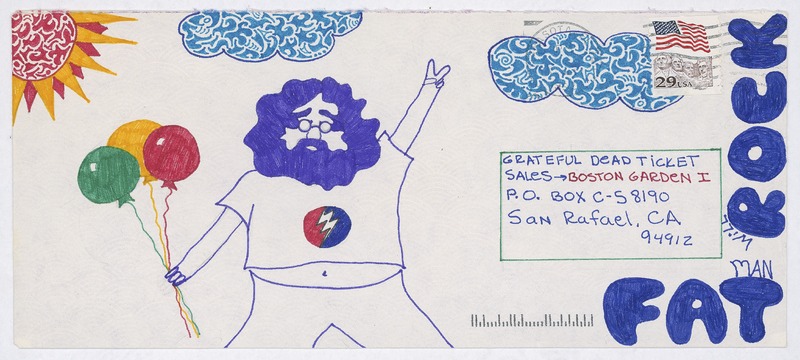 SOTA
29 USA
GRATEFUL DEAD TICKET
SALES→BOSTON GARDEN I
P.O. BOX C-S 8190
San Rafael, CA
94912
FAT
MAN
WILL
ROCK